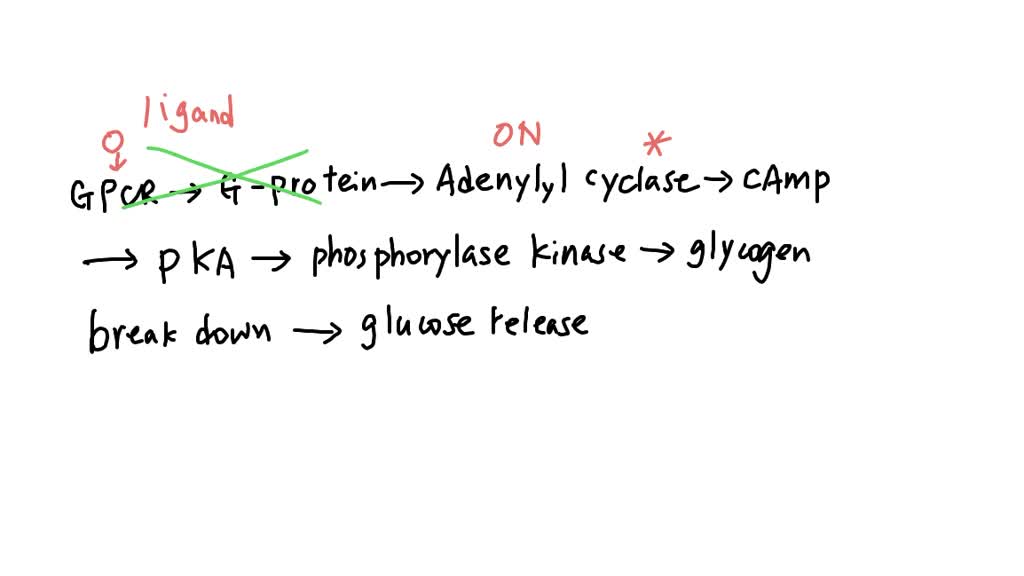 ligand
ON *
GPCR → G-protein → Adenylyl cyclase → cAmp
→ pKA → phosphorylase kinase → glycogen
break down → glucose release